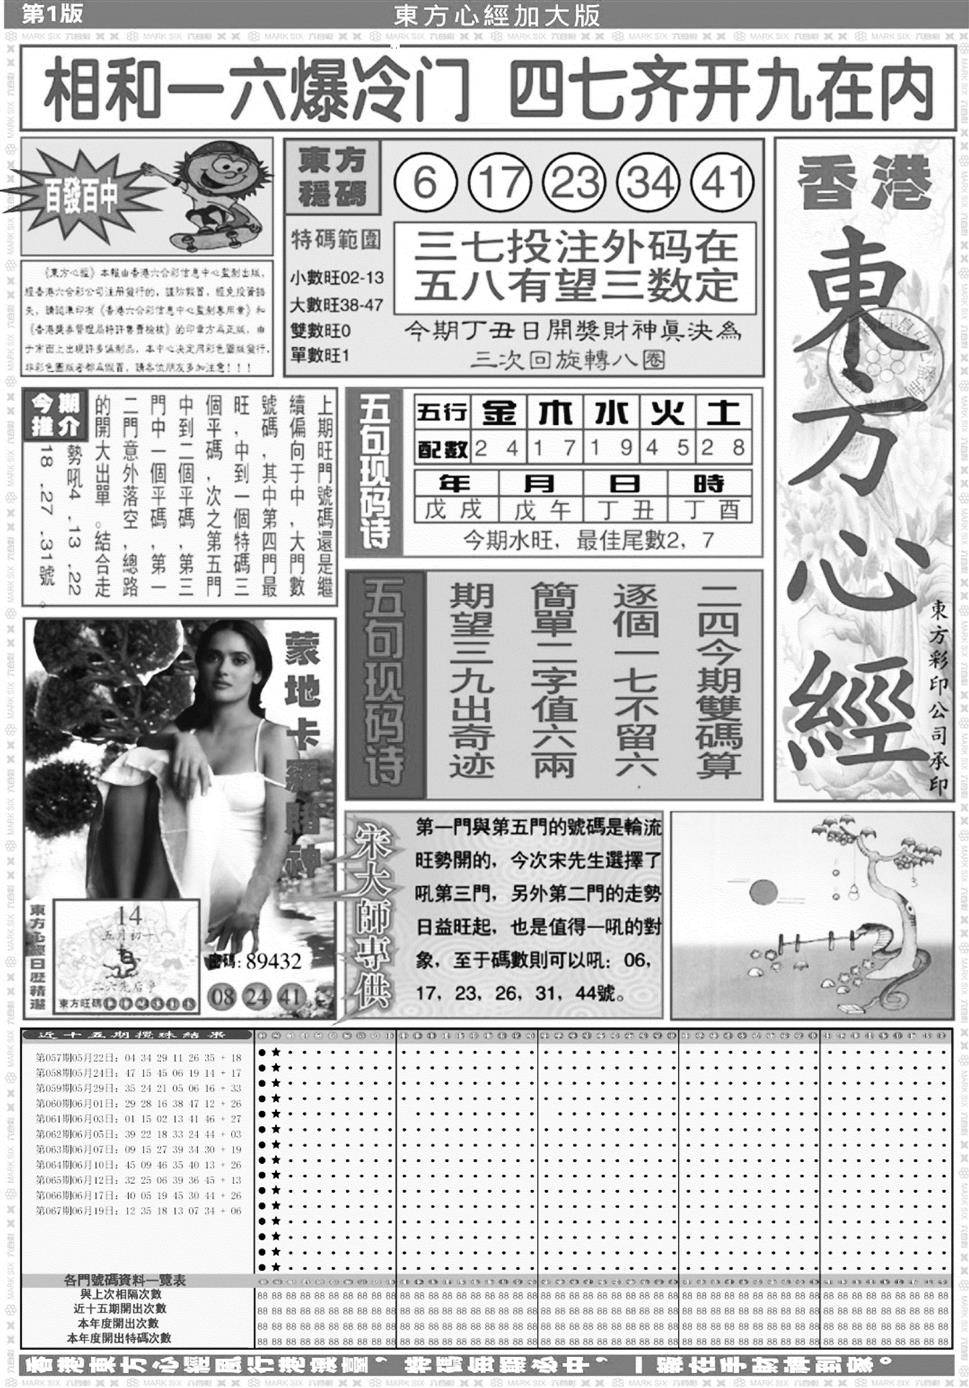 第1版
東方心經加大版
相和一六爆冷门 四七齐开九在内
百發百中
《東方心經》本報由香港六合彩信息中心監制出版,
經香港六合彩公司注册發行的,謹防假冒,避免投資錯
失,請認準印有《香港六合彩信息中心監制專用章》和
《香港獎券管理局特許售賣檢核》的印章方爲正版,由
于市面上出現許多僞制品,本中心决定用彩色圖版發行,
非彩色圖版者都爲假冒,請各位朋友多加注意!!!
東方
穩碼
6 17 23 34 41
特碼範圍
小數旺02-13
大數旺38-47
雙數旺0
單數旺1
三七投注外码在
五八有望三数定
今期丁丑日開獎財神眞決為
三次回旋轉八圈
香港
東方心經
東方彩印公司承印
今期
推介
上期旺門號碼還是繼
續偏向于中,大門數
號碼,其中第四門最
旺,中到一個特碼三
個平碼,次之第五門
中到二個平碼,第三
門中一個平碼,第一
二門意外落空,總路
的開大出單。結合走
勢吼4,13,22
18,27,31號。
五句现码诗
五行 金 木 水 火 土
配數 2 4 1 7 1 9 4 5 2 8
年 月 日 時
戊戌 戊午 丁丑 丁酉
今期水旺,最佳尾數2,7
五句现码诗
二四今期雙碼算
逐個一七不留六
簡單二字值六兩
期望三九出奇迹
蒙地卡羅賭神
東方心經日歷精選
14
五月初十
二六先后争
東方旺碼
密碼:89432
08 24 41
宋大師專供
第一門與第五門的號碼是輪流
旺勢開的,今次宋先生選擇了
吼第三門,另外第二門的走勢
日益旺起,也是值得一吼的對
象,至于碼數則可以吼:06,
17,23,26,31,44號。
近十五期攪珠結果
第057期05月22日:04 34 29 11 26 35 + 18
第058期05月24日:47 15 45 06 19 14 + 17
第059期05月29日:35 24 21 05 06 16 + 33
第060期06月01日:29 28 16 38 47 12 + 26
第061期06月03日:01 15 02 13 41 46 + 27
第062期06月05日:39 22 18 33 24 44 + 03
第063期06月07日:09 15 27 39 34 30 + 19
第064期06月10日:45 09 46 35 40 13 + 26
第065期06月12日:32 25 06 39 36 45 + 13
第066期06月17日:40 05 19 45 30 44 + 26
第067期06月19日:12 35 18 13 07 34 + 06
各門號碼資料一覽表
與上次相隔次數
近十五期開出次數
本年度開出次數
本年度開出特碼次數
香港東方心經風行港澳臺,特碼每期必中,一版在手財神到家。